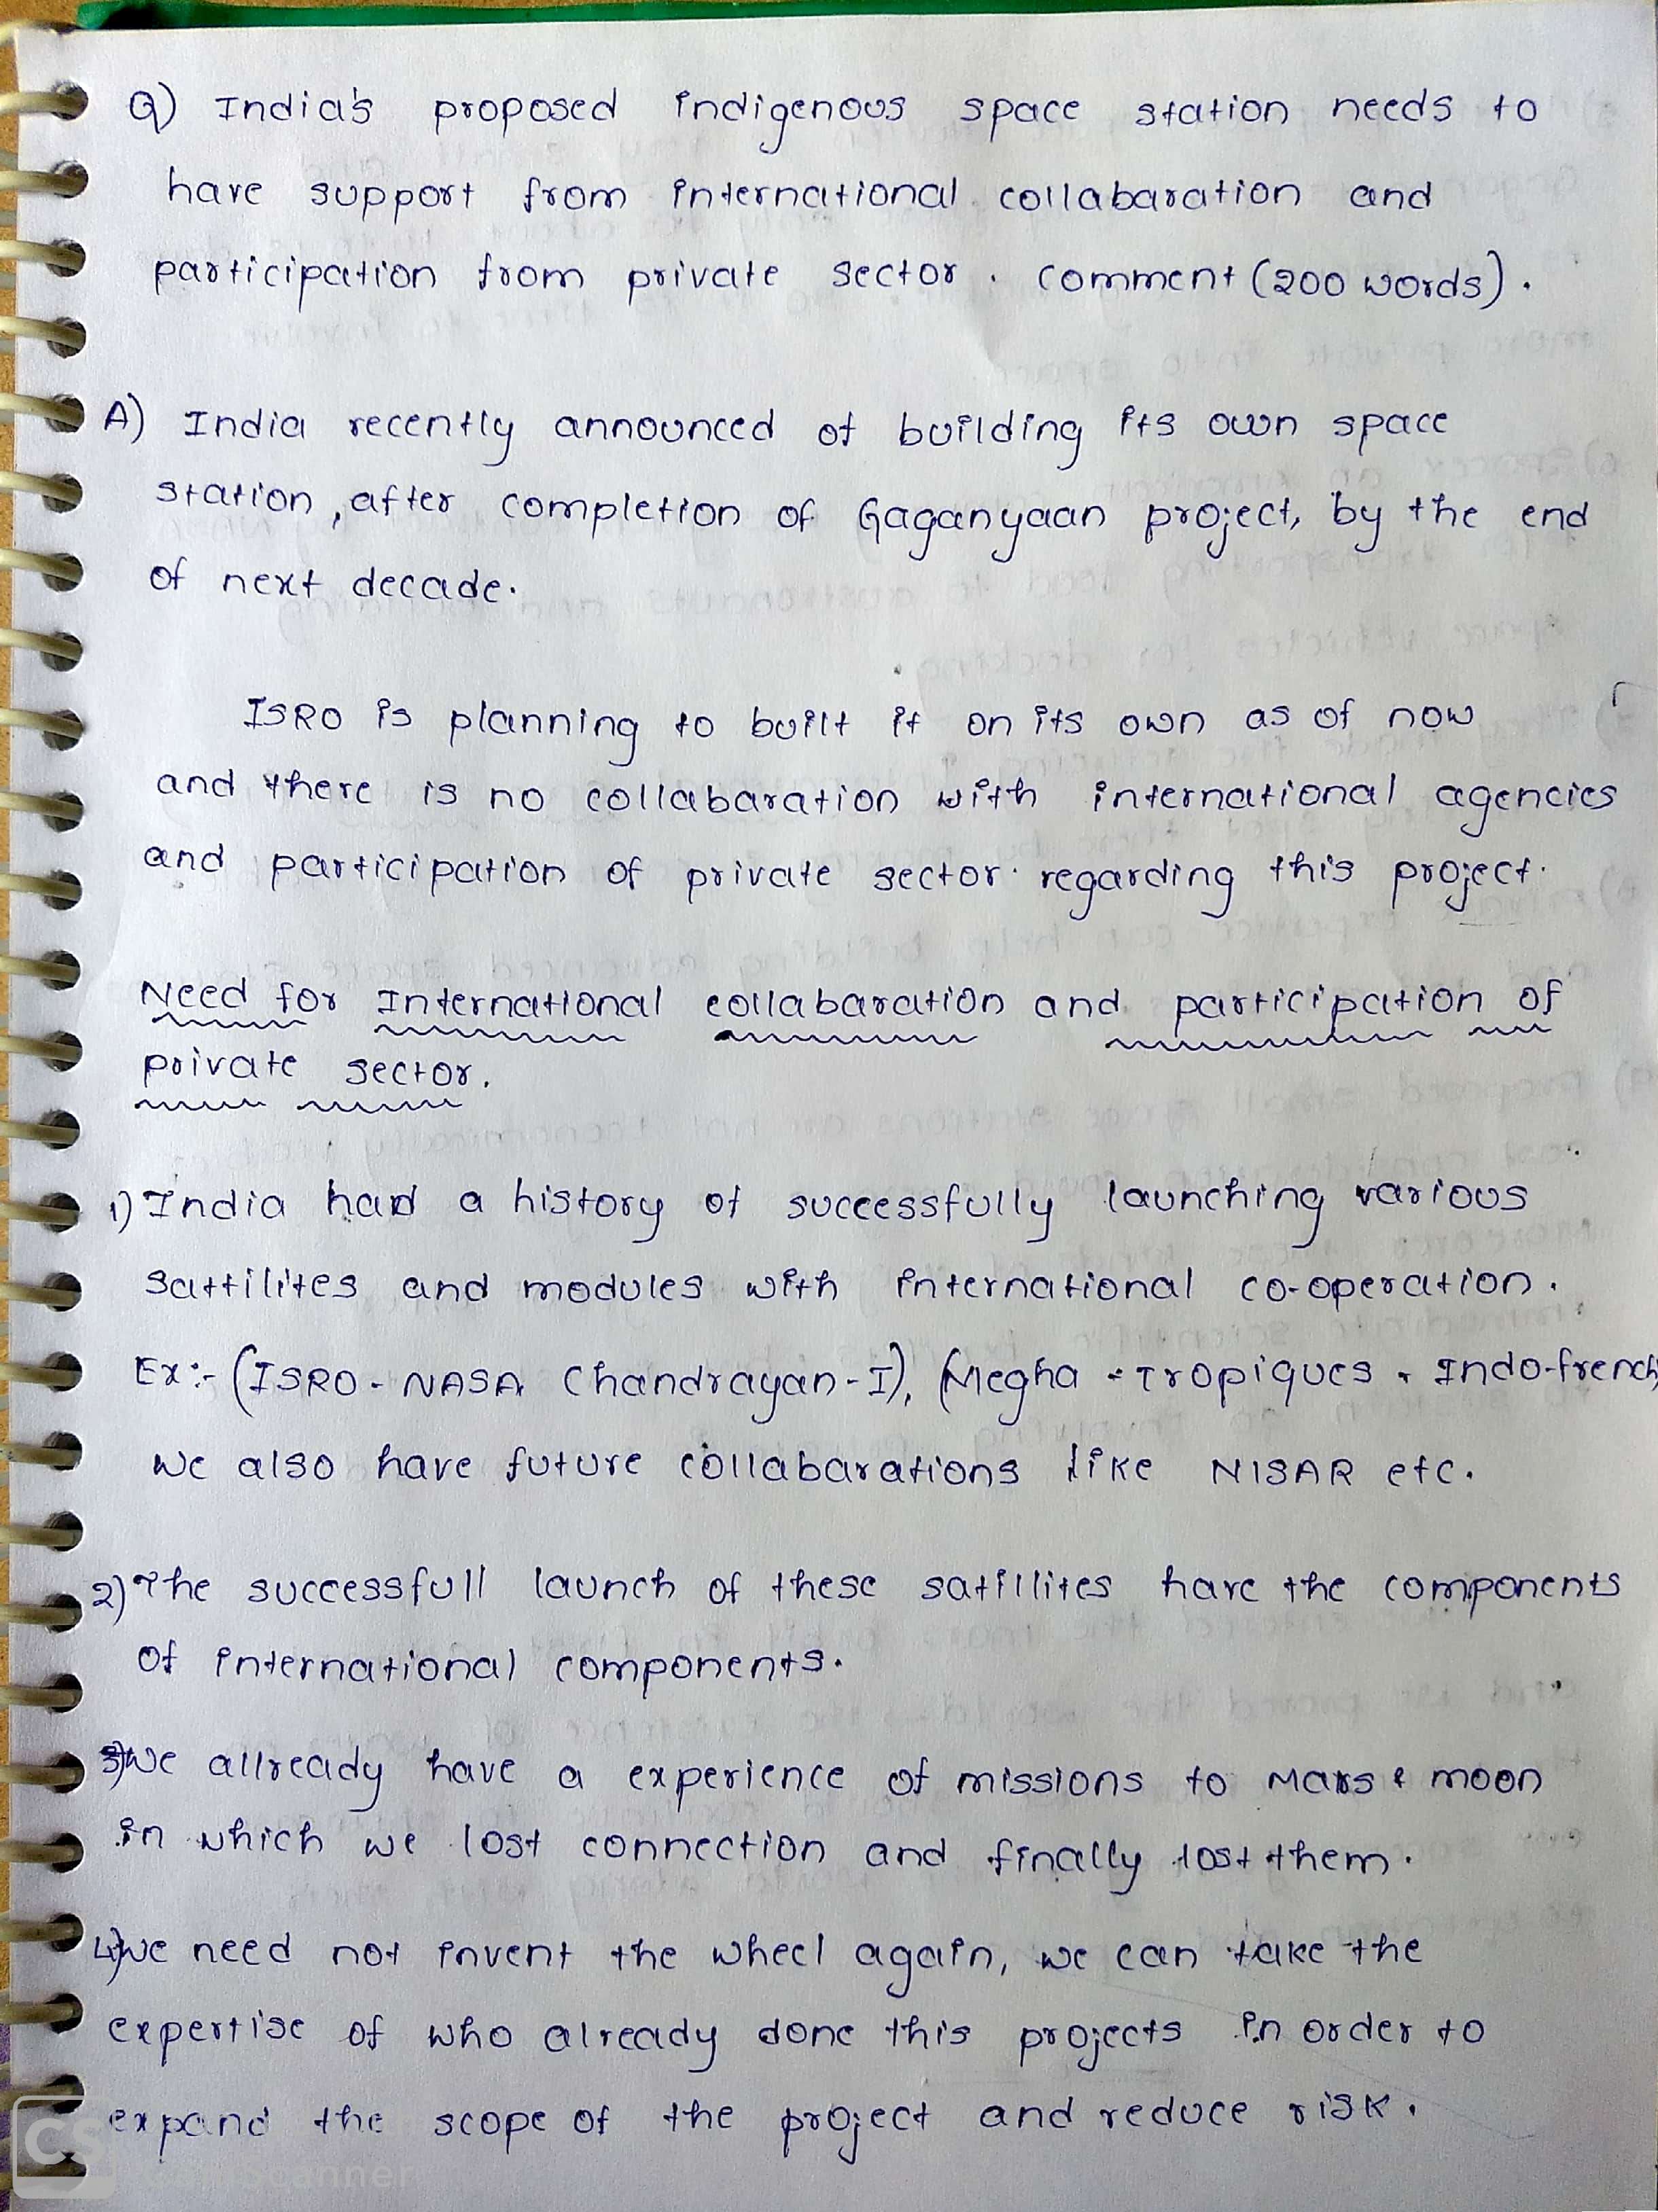 Q) India's proposed indigenous space station needs to
have support from international collabaration and
participation from private sector. comment (200 words).
A) India recently announced of building its own space
station, after completion of Gaganyaan project, by the end
of next decade.
ISRO is planning to built it on its own as of now
and there is no collabaration with international agencies
and participation of private sector regarding this project.
Need for International collabaration and participation of
private sector.
1) India had a history of successfully launching various
sattilites and modules with international co-operation.
Ex:- (ISRO - NASA Chandrayan-I), (Megha - Tropiques - Indo-french)
we also have future collabarations like NISAR etc.
2) The successfull launch of these satillites have the components
of international components.
3) we allready have a experience of missions to Mars & moon
in which we lost connection and finally lost them.
4) we need not invent the wheel again, we can take the
expertise of who already done this projects in order to
expand the scope of the project and reduce risk.
CS